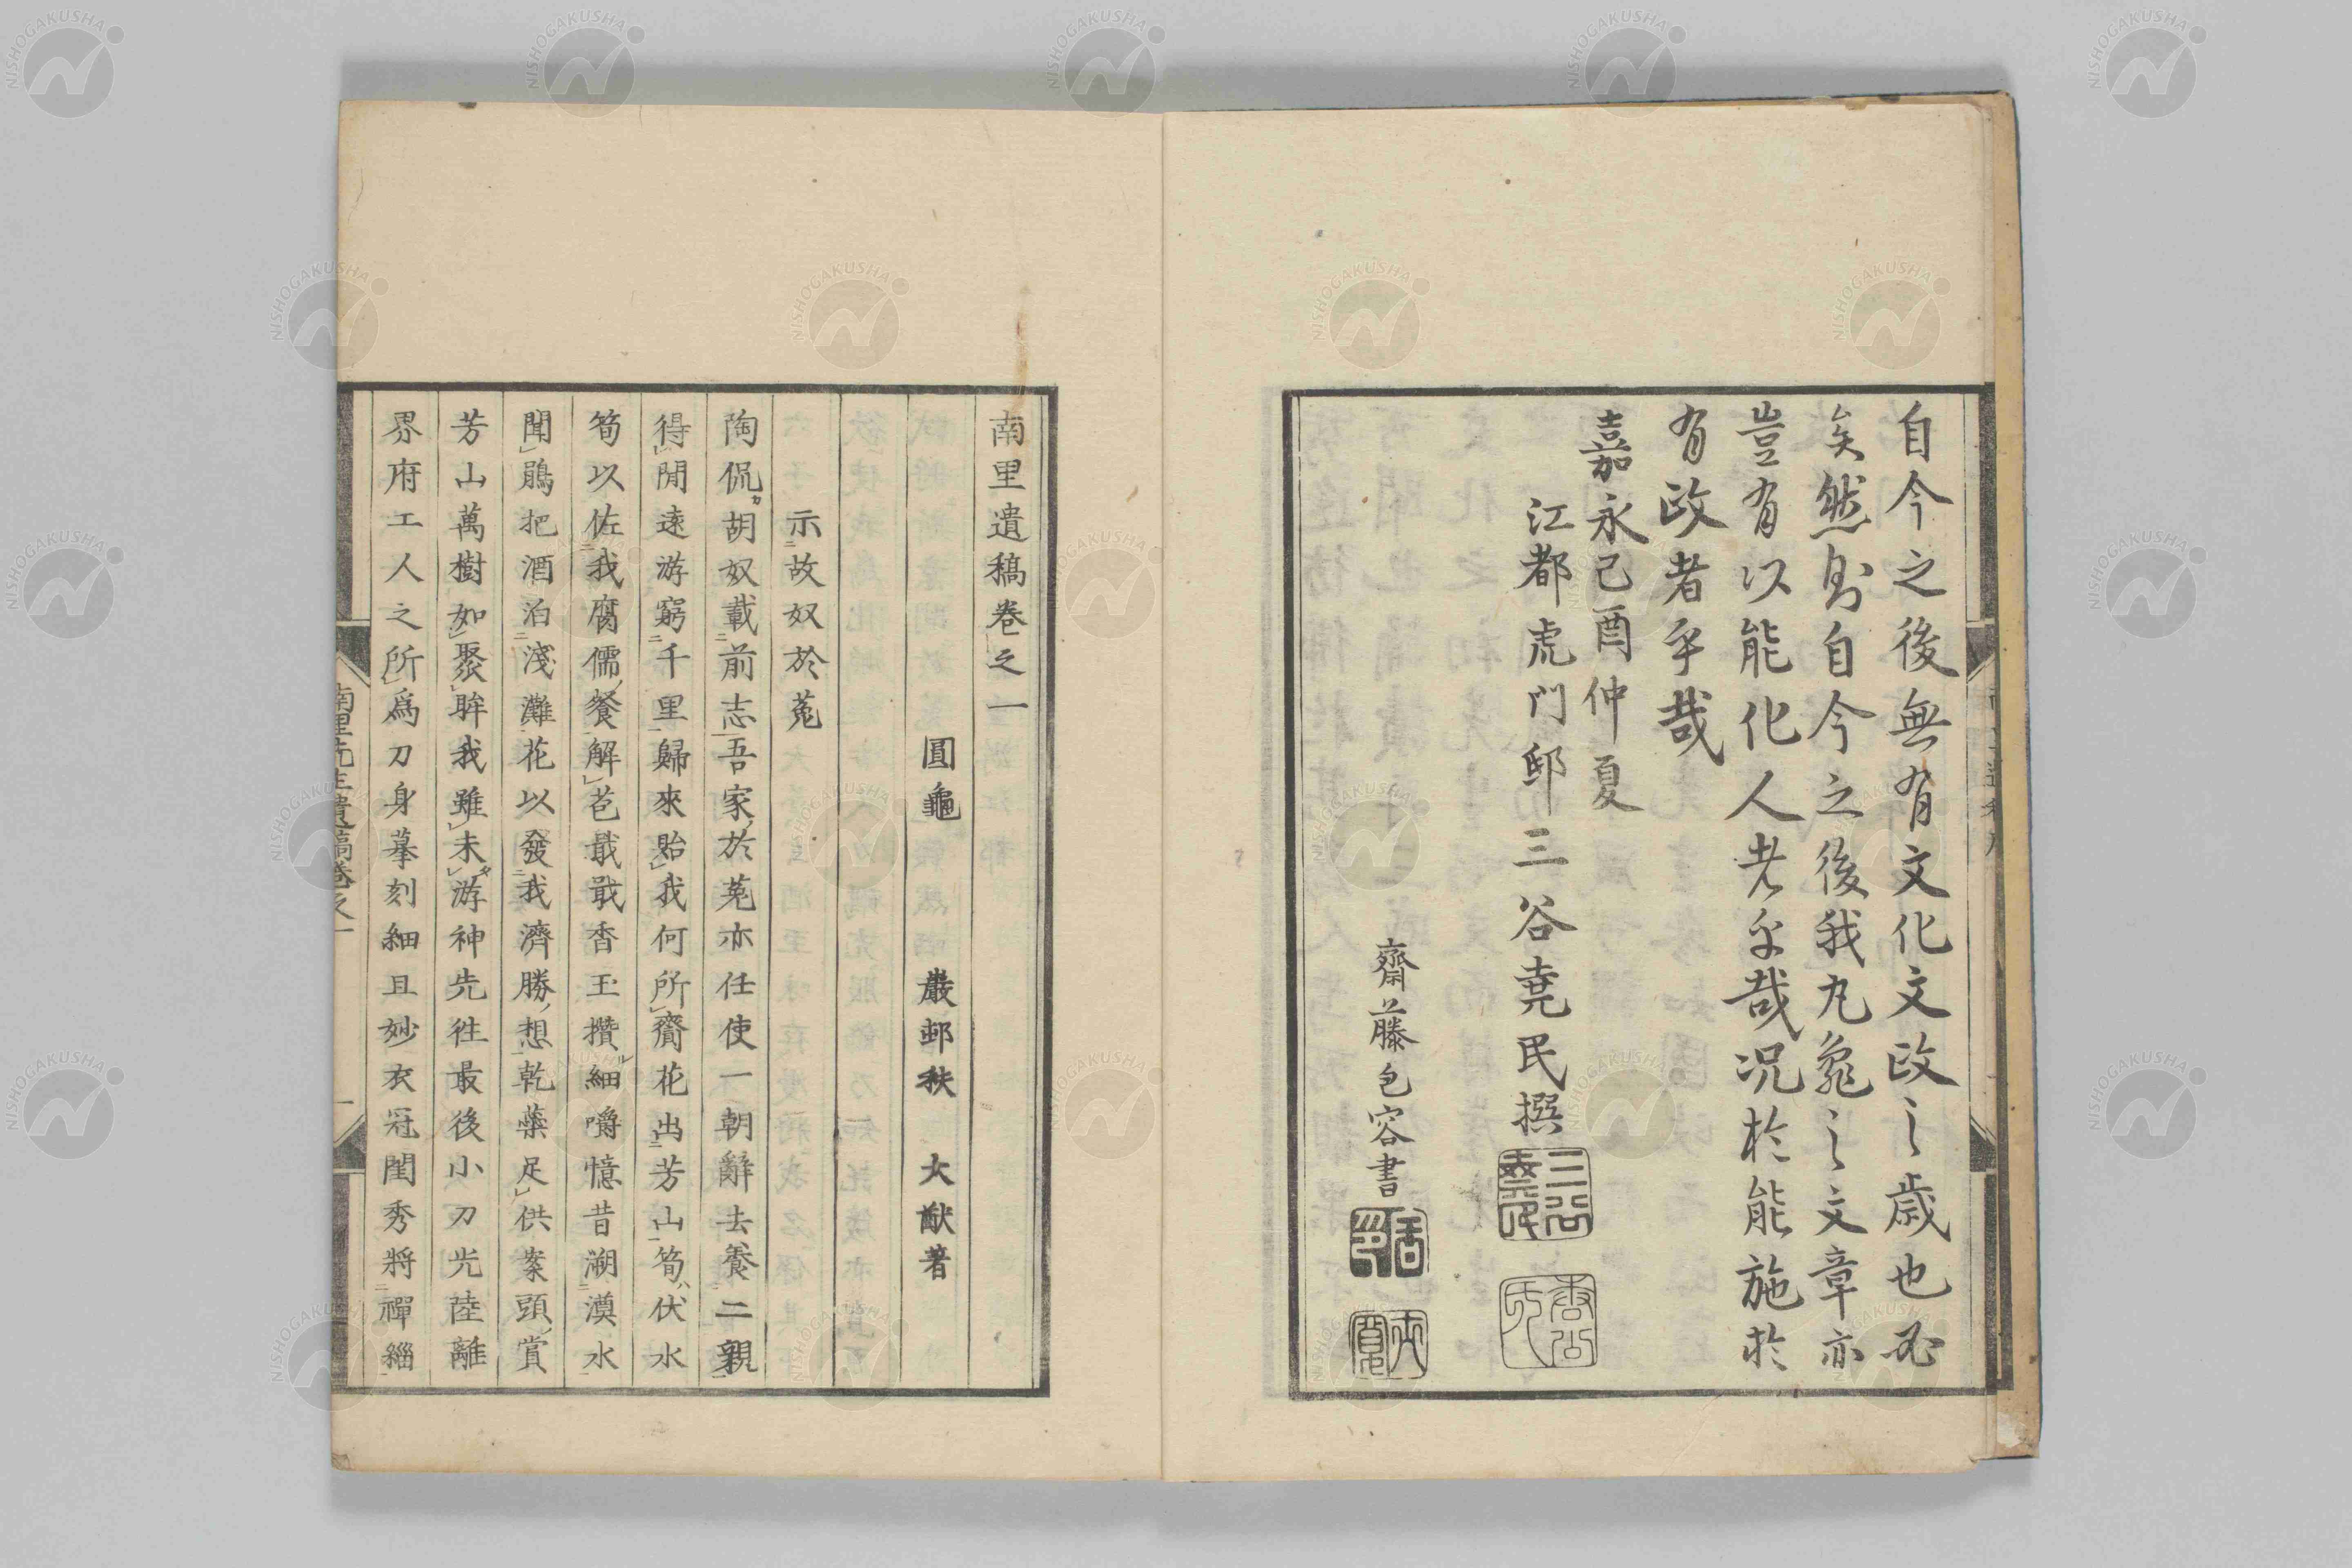 自今之後無有文化文政之歳也必
矣然則自今之後我丸龜之文章亦
豈有以能化人者乎哉况於能施於
有政者乎哉
嘉永己酉仲夏
江都虎門邸三谷堯民撰
齋藤包容書
南里遺稿卷之一
圓龜 巖邨秩 大猷著
示故奴於菟
陶侃胡奴載前志吾家於菟亦任使一朝辭去養二親
得閒遠游窮千里歸來貽我何所齎花出芳山筍伏水
筍以佐我腐儒餐解苞最戢戢香玉攢細嚼憶昔溯澳水
聞鵑把酒泊淺灘花以發我濟勝想乾藥足供案頭賞
芳山萬樹如聚眸我雖未游神先徃最後小刀光陸離
界府工人之所爲刀身摹刻細且妙衣冠閨秀將禪緇
南里先生遺稿卷之一
NISHOGAKUSHA